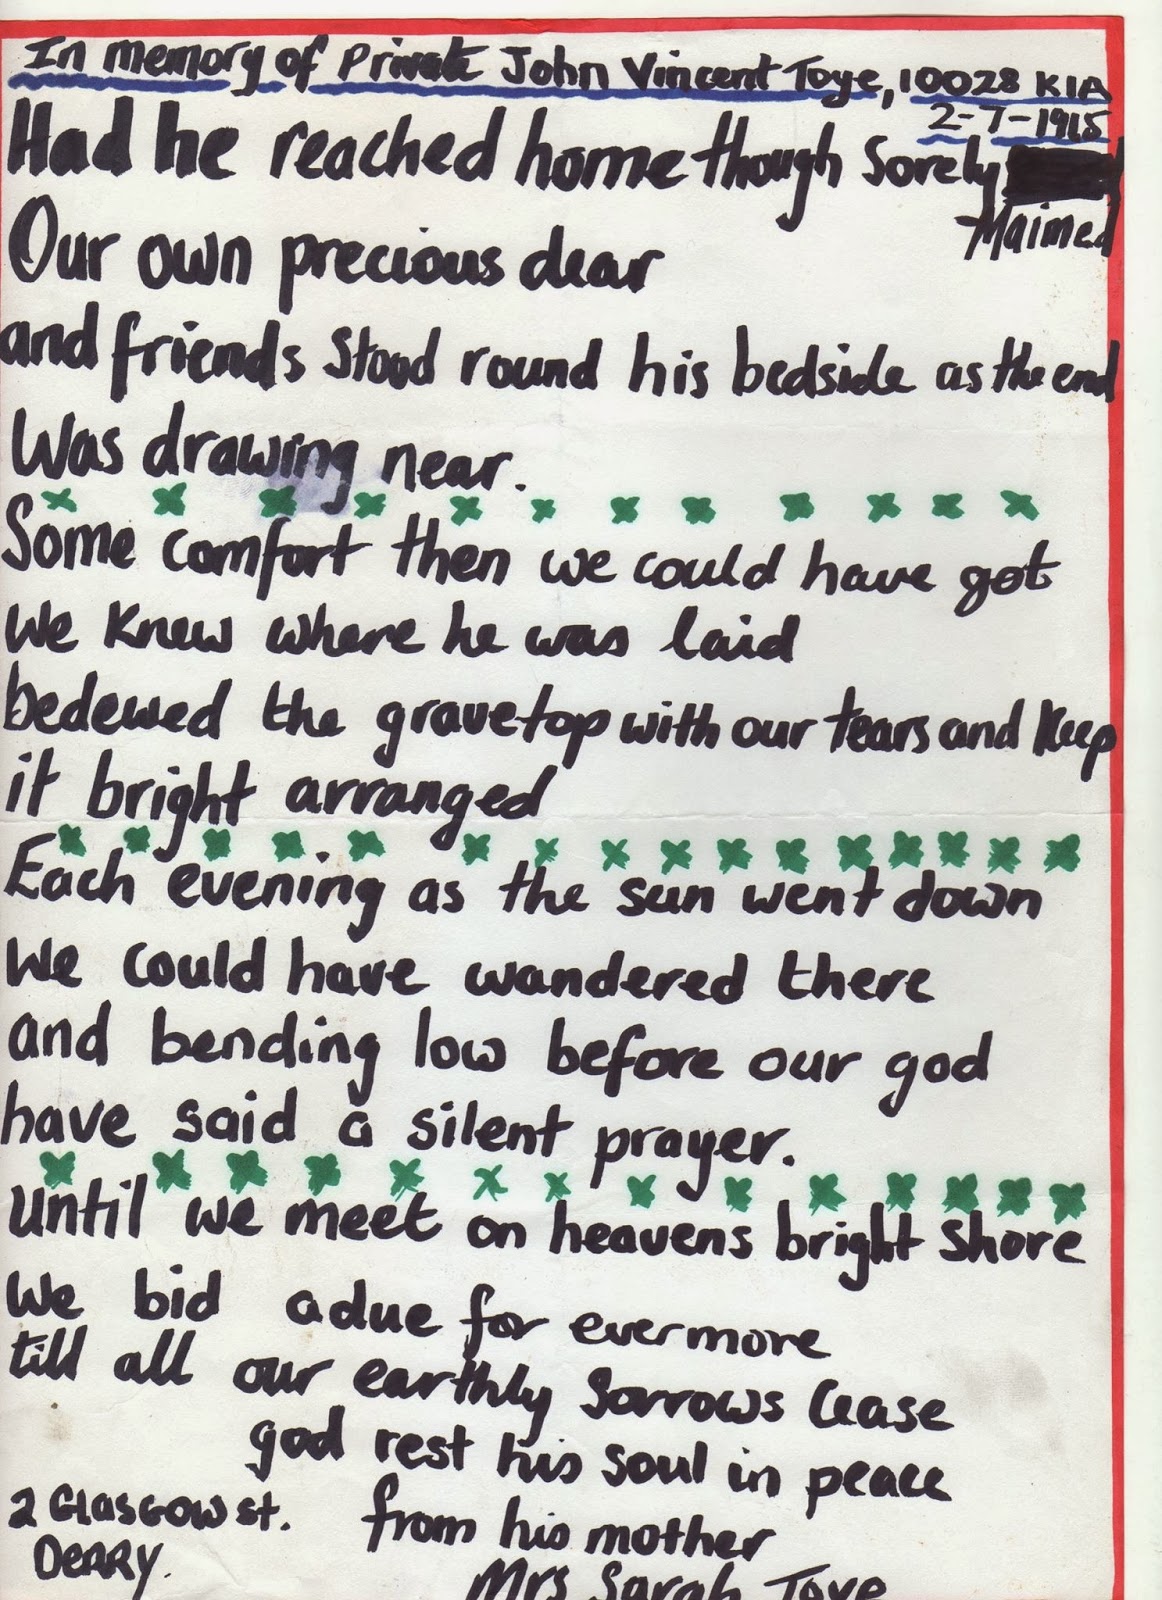 In memory of Private John Vincent Toye, 10028 KIA
2-7-1915
Had he reached home though Sorely
Maimed
Our own precious dear
and friends Stood round his bedside as the end
Was drawing near.
Some comfort then we could have got
We Knew where he was laid
bedewed the gravetop with our tears and Keep
it bright arranged
Each evening as the sun went down
We could have wandered there
and bending low before our god
have said a silent prayer.
Until we meet on heavens bright Shore
We bid adue for evermore
till all our earthly Sorrows Cease
god rest his soul in peace
2 GLASGOW St. from his mother
DERRY. Mrs Sarah Toye